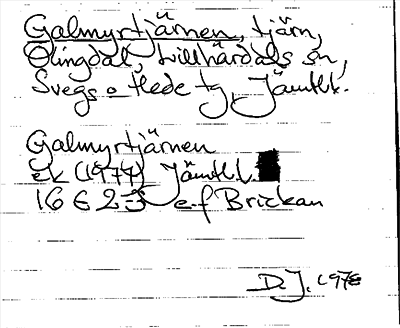 Galmyrtjärnen, tjärn,
Olingdal, Lillhärdals sn,
Svegs o Hede tg, Jämtl.l.
Galmyrtjärnen
ek (1974) Jämtl.l.
16 E 2-3 e-f Brickan
D.J. 1978